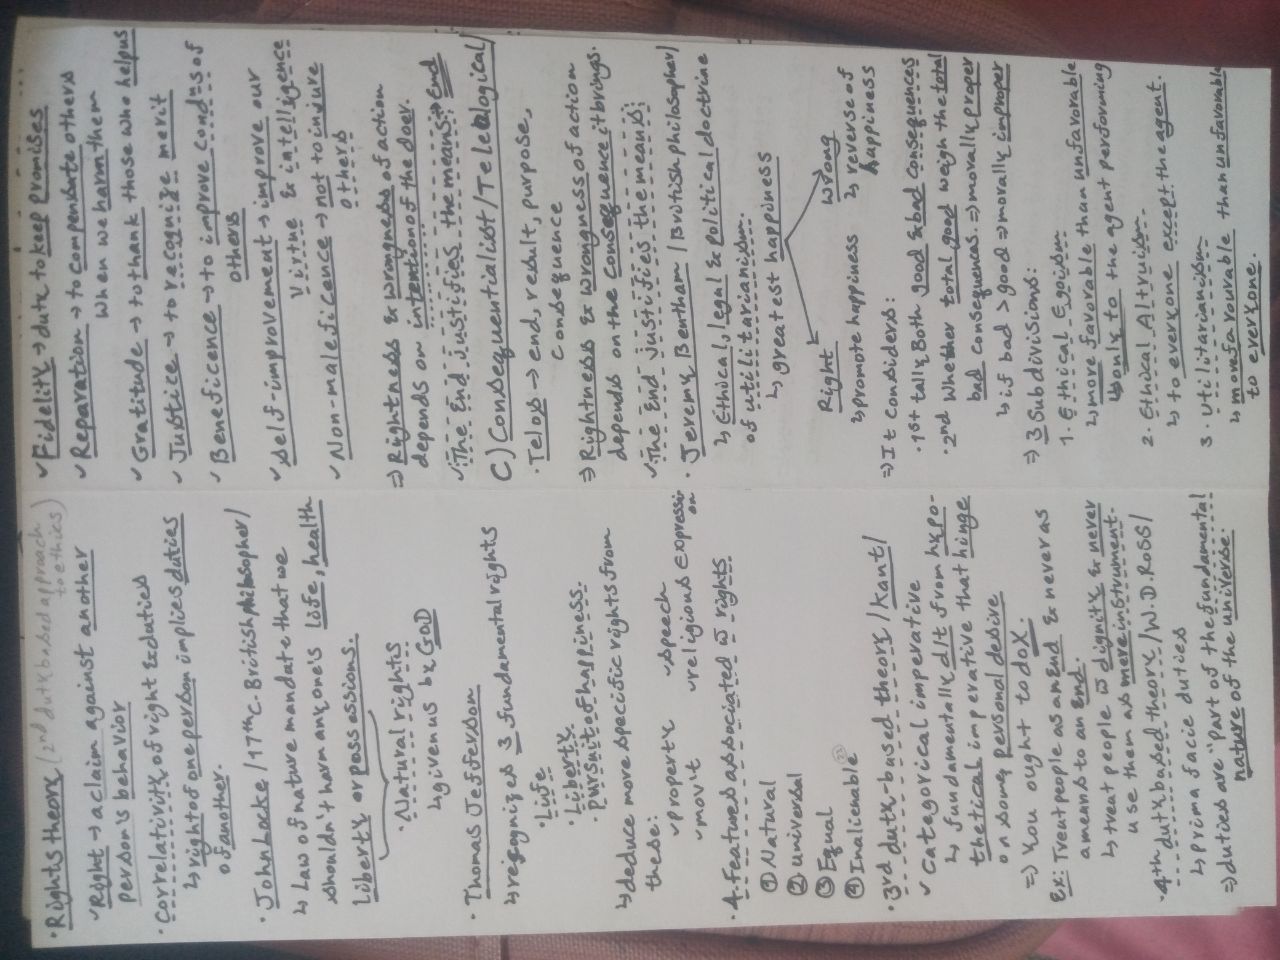 • Rights theory (2nd duty based approach to ethics)
✓ Right → a claim against another
person's behavior
• Correlativity of right & duties
↳ right of one person implies duties
of another.
• John Locke / 17th C. British philosopher/
↳ Law of nature mandate that we
shouldn't harm anyone's life, health
liberty or possessions.
• Natural rights
↳ given us by GOD
• Thomas Jefferson
↳ recognizes 3 fundamental rights
• Life
• Liberty
• pursuit of happiness.
↳ deduce more specific rights from
these:
✓ property ✓ speech
✓ mov't ✓ religious expression
• 4 features associated w rights
① Natural
② universal
③ Equal
④ Inalienable
• 3rd duty-based theory / Kant/
✓ Categorical imperative
↳ fundamentally d/t from hypo-
thetical imperative that hinge
on some personal desire
⇒ You ought to do X.
Ex: Treat people as an End & never as
a means to an End.
↳ treat people w dignity & never
use them as mere instrument.
• 4th duty based theory / W.D. ROSS/
↳ prima facie duties
⇒ duties are "part of the fundamental
nature of the universe.
✓ Fidelity → duty to keep promises
✓ Reparation → to compensate others
when we harm them
✓ Gratitude → to thank those who help us
✓ Justice → to recognize merit
✓ Beneficence → to improve conduns of
others
✓ Self-improvement → improve our
virtue & intelligence
✓ Non-maleficence → not to injure
others
⇒ Rightness & wrongness of action
depends on intention of the doer.
✓ "The End justifies the means" → End
C) Consequentialist / Teleological/
• Telos → end, result, purpose,
consequence
⇒ Rightness & wrongness of action
depends on the consequence it brings.
✓ "The End justifies the means"
• Jeremy Bentham / British philosopher/
↳ Ethical, legal & political doctrine
of utilitarianism.
↳ greatest happiness
Right wrong
↳ promote happiness ↳ reverse of
happiness
⇒ It Considers:
• 1st tally Both good & bad consequences
• 2nd Whether total good weigh the total
bad consequences. ⇒ morally proper
↳ if bad > good ⇒ morally improper
⇒ 3 Subdivisions:
1. Ethical Egoism
↳ more favorable than unfavorable
only to the agent performing
2. Ethical Altruism.
↳ to everyone except the agent.
3. Utilitarianism
↳ more favourable than unfavorable
to everyone.